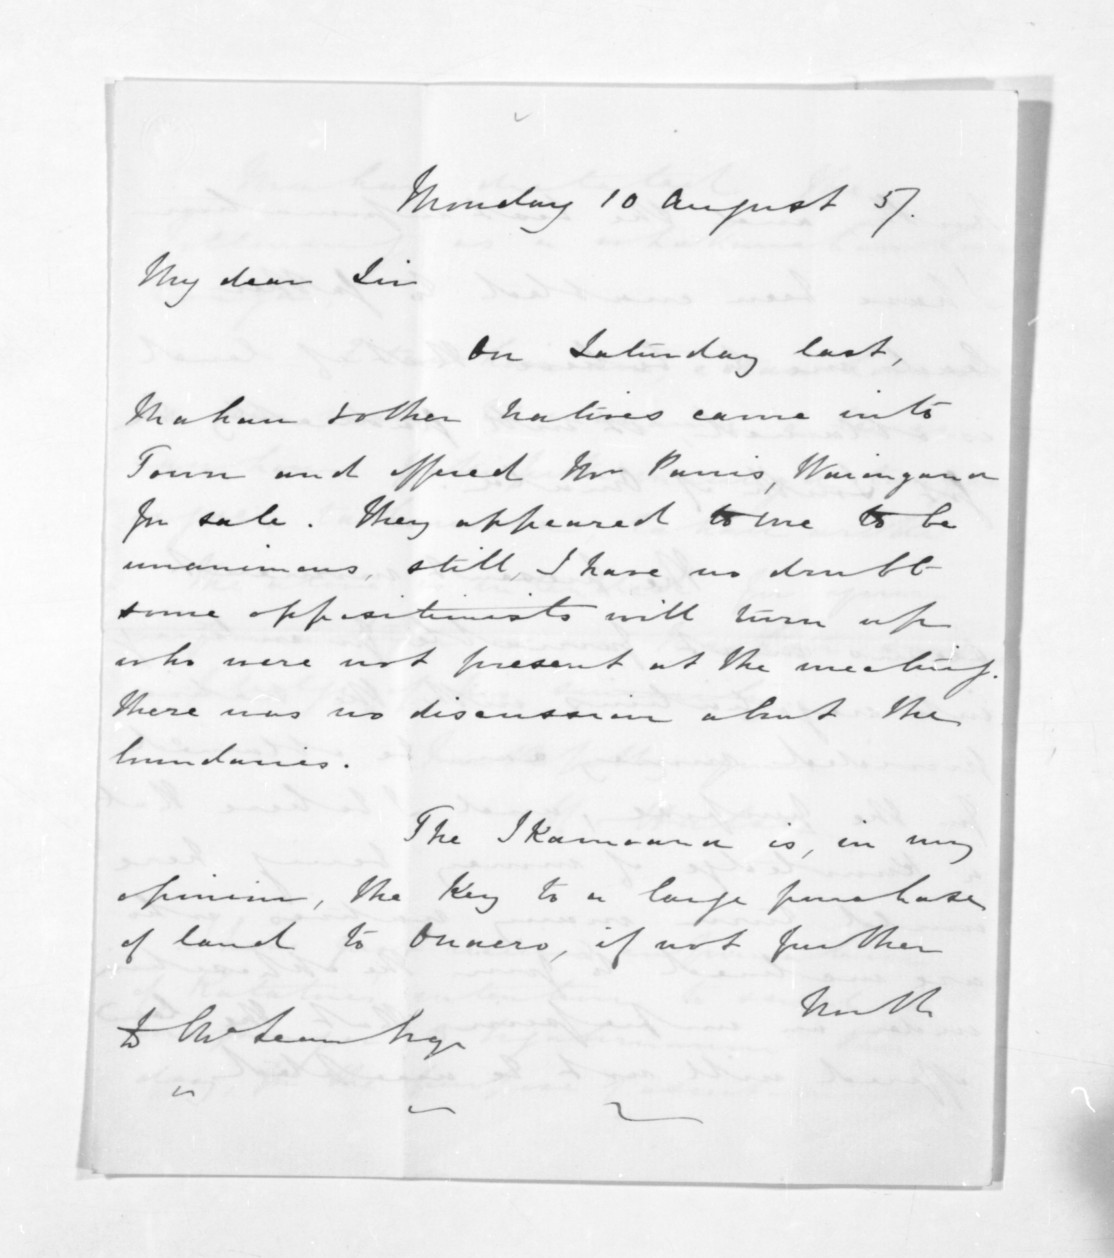 Monday 10 August 57.
My dear Sir
On Saturday last,
Mahau & other Natives came into
Town and offered Mr Parris, Waiongana
for sale. They appeared to me to be
unanimous, still, I have no doubt
some oppositionists will turn up
who were not present at the meeting.
There was no discussion about the
boundaries.
The Ikamoana is, in my
opinion, the Key to a large purchase
of land to Onaero, if not further
North
D McLean Esqr